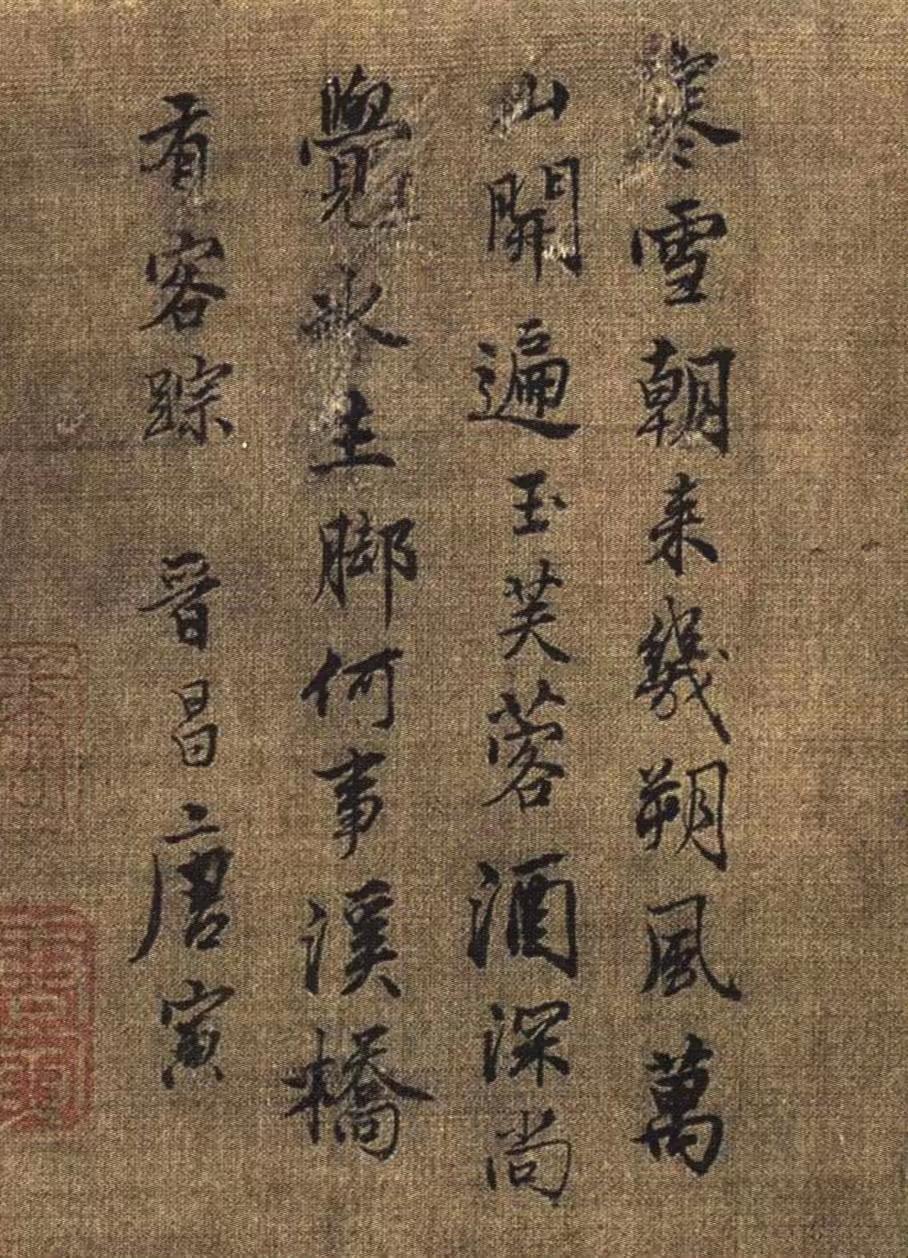 寒雪朝来幾朔風萬
山開遍玉芙蓉酒深尚
覺氷生脚何事溪橋
有客踪 晉昌唐寅